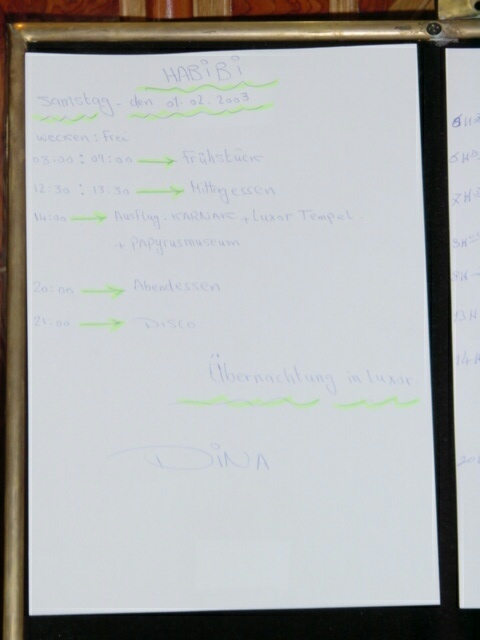 HABiBi
Samstag - den 01.02.2003
Wecken: Frei
08:00 : 09:00 → Frühstück
12:30 : 13.30 → Mittagessen
14:00 → Ausflug. KARNAK + Luxor Tempel.
+ PAPyrusmuseum
20:00 → Abendessen
21.00 → Disco
Übernachtung in Luxor
DiNA
13H
14H